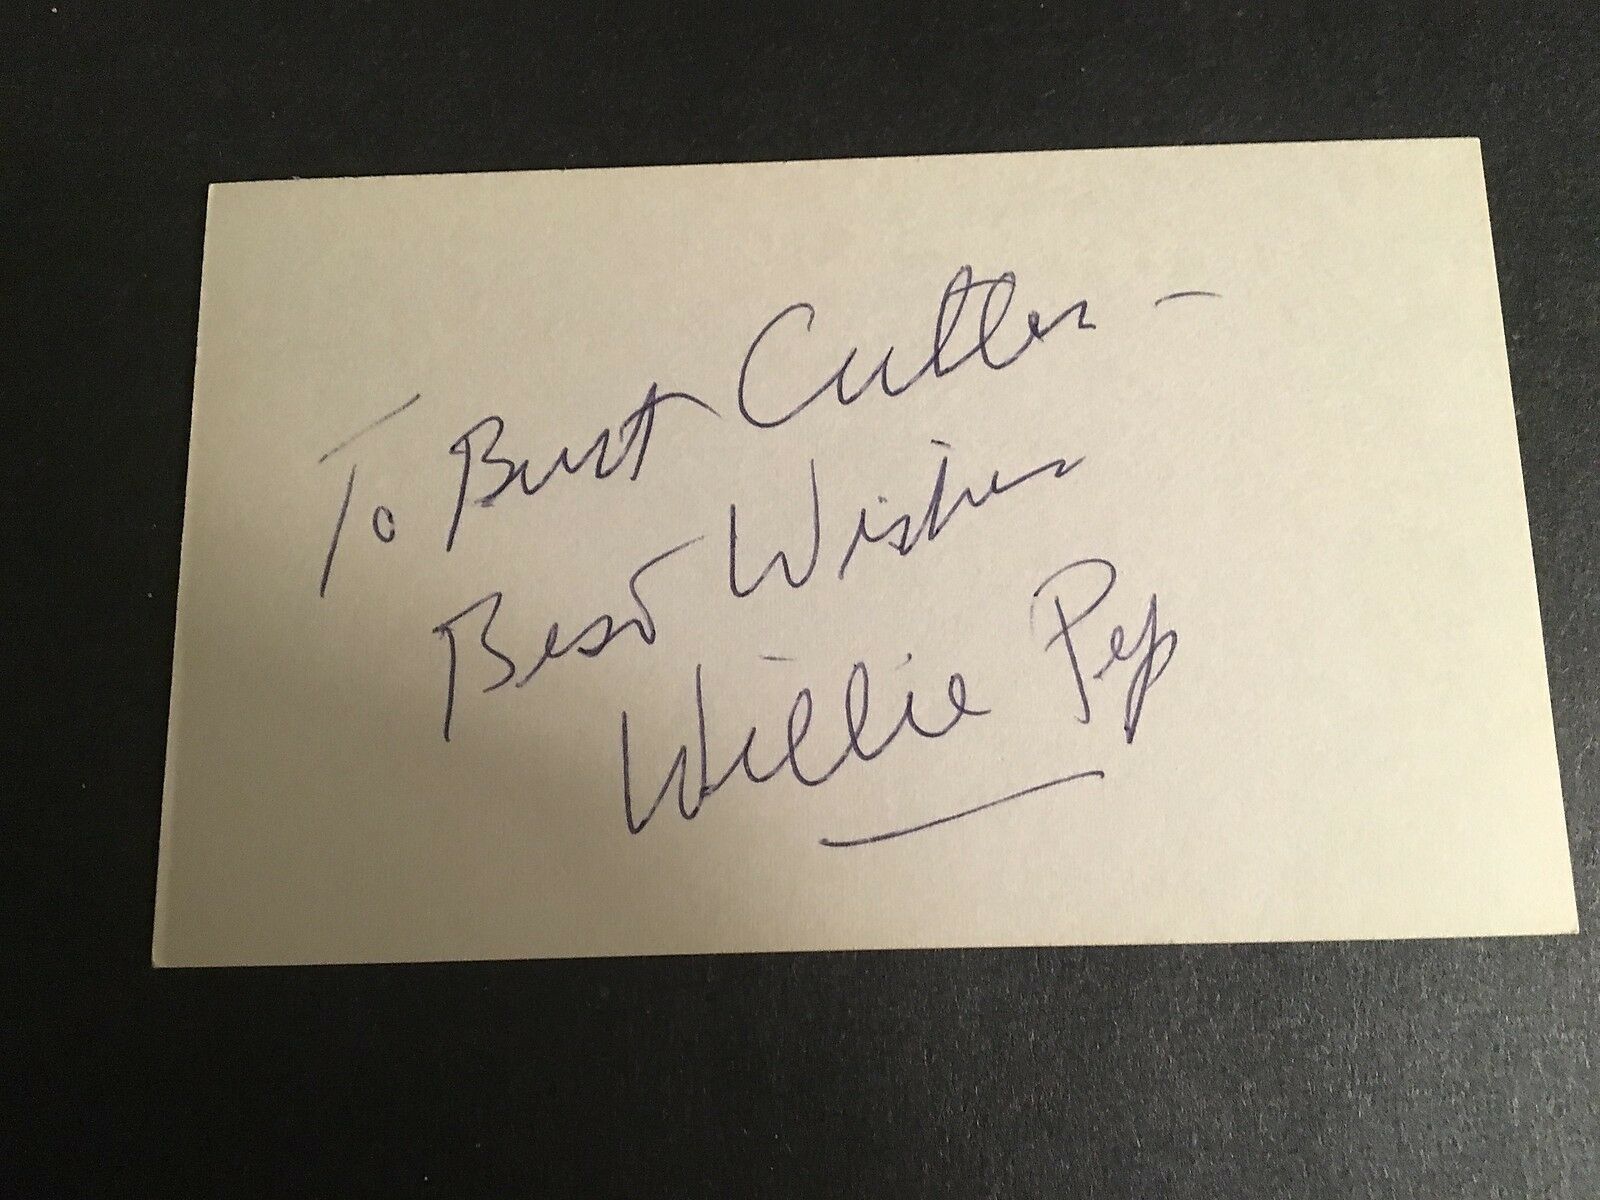 To Burt Cutler -
Best Wishes
Willie Pep